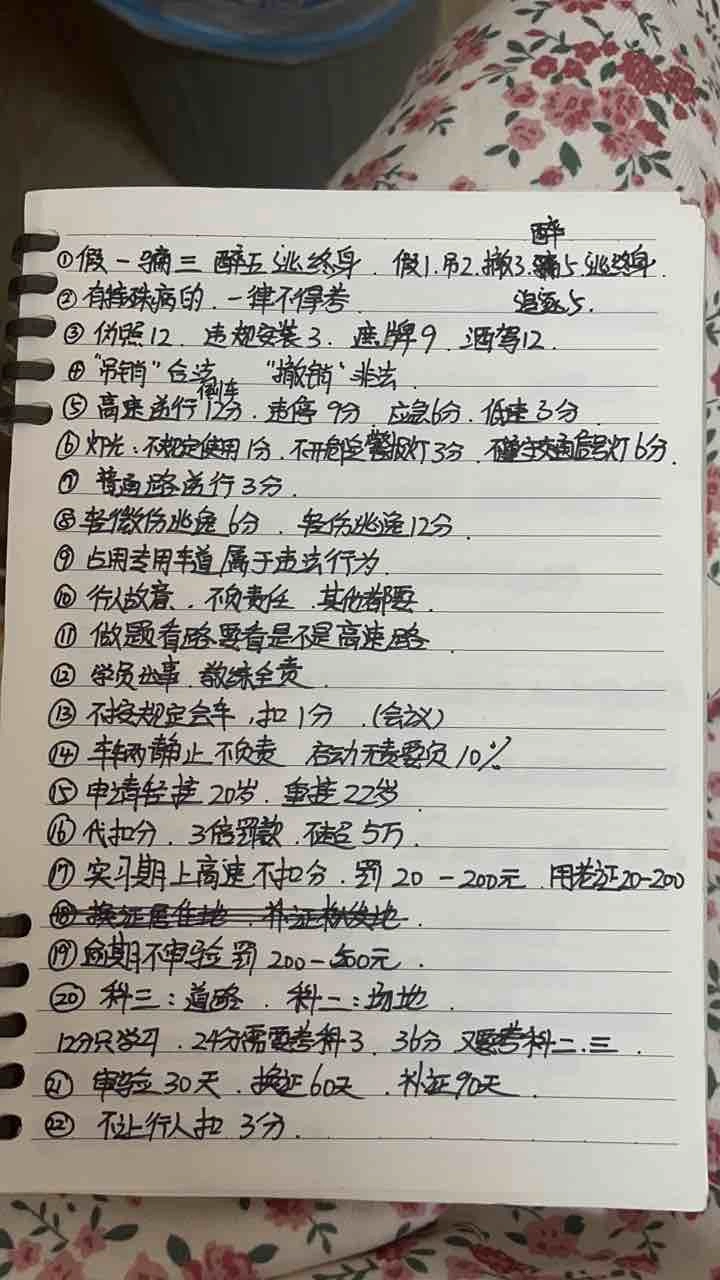 醉
①假一瞒三 醉五逃终身. 假1.吊2.撤3.瞒5.逃终身.
②有特殊病的.一律不得考. 追逐5.
③伪照12. 违规安装3. 遮牌9. 酒驾12.
④"吊销"合法 "撤销"非法.
倒车
⑤高速逆行12分.违停9分 应急6分.低速3分.
⑥灯光:不规定使用1分.不开危险警报灯3分.不遵守交通信号灯6分.
⑦普通路逆行3分.
⑧轻微伤逃逸6分.轻伤逃逸12分.
⑨占用专用车道属于违法行为.
⑩行人故意.不负责任.其他都要.
⑪做题看路要看是不是高速路.
⑫学员出事.教练全责.
⑬不按规定会车,扣1分.(会议)
⑭车辆静止不负责 启动无责要负10%
⑮申请轻挂20岁.重挂22岁.
⑯代扣分.3倍罚款.不超5万.
⑰实习期上高速不扣分.罚20-200元.用老证20-200
⑱换证居住地.补证核发地.
⑲逾期不审验罚200-500元.
⑳科三:道路.科二:场地.
12分只学习.24分需要考科3.36分又要考科二.三.
㉑审验30天.换证60天.补证90天.
㉒不让行人扣3分.